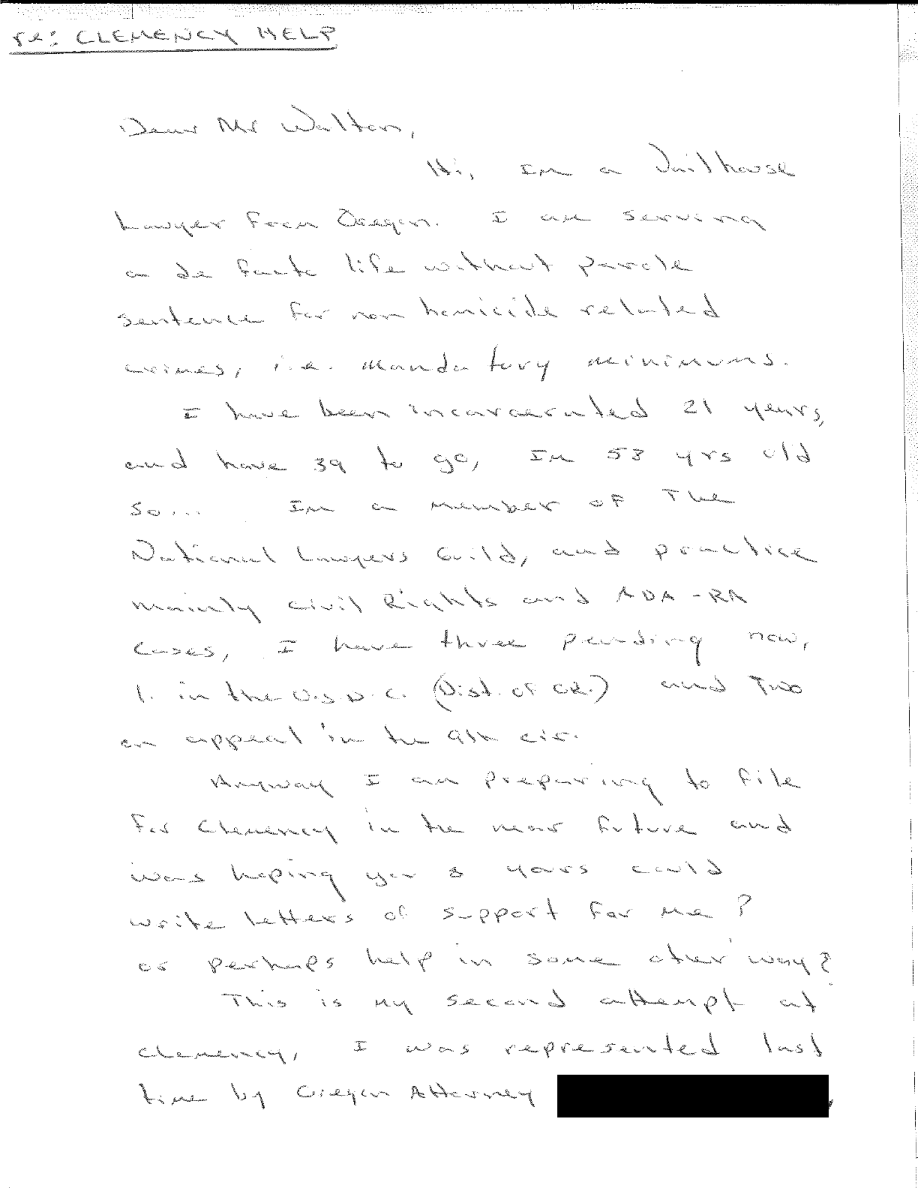 re: CLEMENCY HELP
Dear Mr Walton,
Hi, Im a Jailhouse
Lawyer From Oregon. I am serving
a de facto life without parole
sentence for non homicide related
crimes, i.e. mandatory minimums.
I have been incarcerated 21 years,
and have 39 to go, Im 53 yrs old
so... Im a member of The
National Lawyers Guild, and practice
mainly civil Rights and ADA-RA
Cases, I have three pending now,
1. in the U.S.D.C. (Dist. of OR.) and Two
on appeal in the 9th cir.
Anyway I am preparing to file
For Clemency in the near future and
was hoping you & yours could
write letters of support for me?
or perhaps help in some other way?
This is my second attempt at
clemency, I was represented last
time by Oregon Attorney